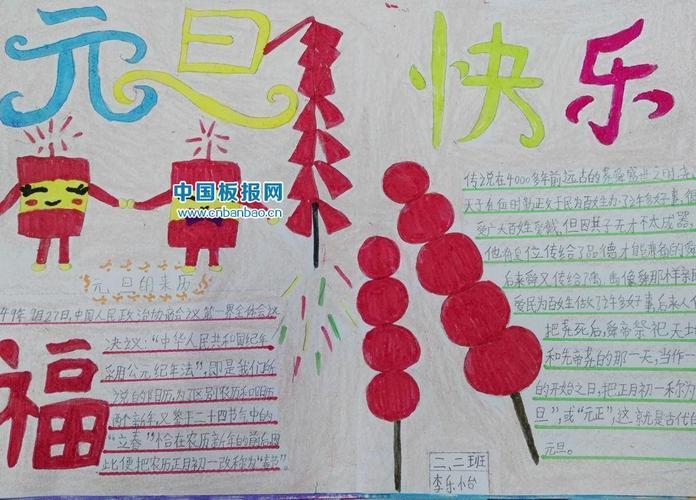 元旦
快乐
中国板报网
www.cnbanbao.cn
元旦的来历
月27日,中国人民政治协商会议第一界全体会议
决议:"中华人民共和国纪年
采用公元纪年法",即是我们所
说的阳历,为了区别农历和阳历
两个新年,又鉴于二十四节气中的
"立春"恰在农历新年的前后,因
此便把农历正月初一改称为"春节"。
福
传说在4000多年前远古的尧舜盛世之时,尧
天子在位时勤政于民为百姓办了许多好事,很
受广大百姓爱戴,但因其子无才不太成器
他将皇位传给了品德才能兼备的
后来舜又传给了禹,禹像舜那样
爱民为百姓做了许多好事,后来人
把尧死后,舜帝祭祀天
和先帝尧的那一天,当作
的开始之日,把正月初一称为
旦",或"元正",这就是古代的
元旦。
二、二班
李乐怡